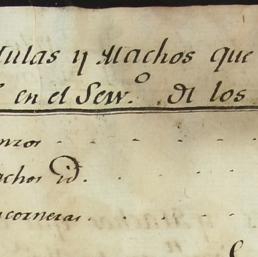 Mulas y Machos que
en el Serv.º de los
nzos
achos id.
corneras